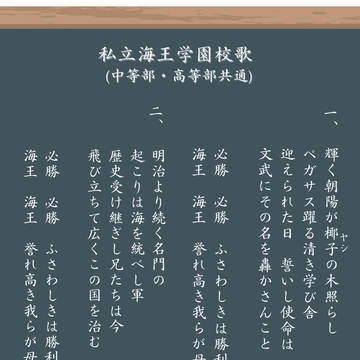 私立海王学園校歌
(中等部・高等部共通)
一、
輝く朝陽が椰子の木照らし
ヤシ
ペガサス躍る清き学び舎
迎えられた日　誓いし使命は
文武にその名を轟かさんこと
必勝　必勝　ふさわしきは勝利
海王　海王　誉れ高き我らが母
二、
明治より続く名門の
起こりは海を統べし軍
歴史受け継ぎし兄たちは今
飛び立ちて広くこの国を治む
必勝　必勝　ふさわしきは勝利
海王　海王　誉れ高き我らが母